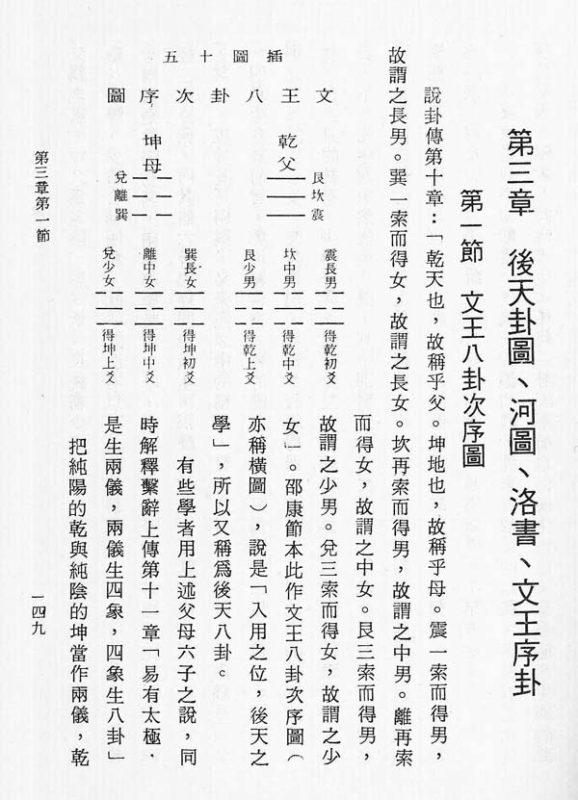 第三章　後天卦圖、河圖、洛書、文王序卦
第一節　文王八卦次序圖
說卦傳第十章：「乾天也，故稱乎父。坤地也，故稱乎母。震一索而得男，
故謂之長男。巽一索而得女，故謂之長女。坎再索而得男，故謂之中男。離再索
而得女，故謂之中女。艮三索而得男，
故謂之少男。兌三索而得女，故謂之少
女」。邵康節本此作文王八卦次序圖（
亦稱橫圖），說是「入用之位，後天之
學」，所以又稱爲後天八卦。
有些學者用上述父母六子之說，同
時解釋繫辭上傳第十一章「易有太極．
是生兩儀，兩儀生四象，四象生八卦」
把純陽的乾與純陰的坤當作兩儀，乾
插圖十五
文王八卦次序圖
乾父
艮坎震
坤母
兌離巽
震長男
得乾初爻
坎中男
得乾中爻
艮少男
得乾上爻
巽長女
得坤初爻
離中女
得坤中爻
兌少女
得坤上爻
第三章第一節
一四九